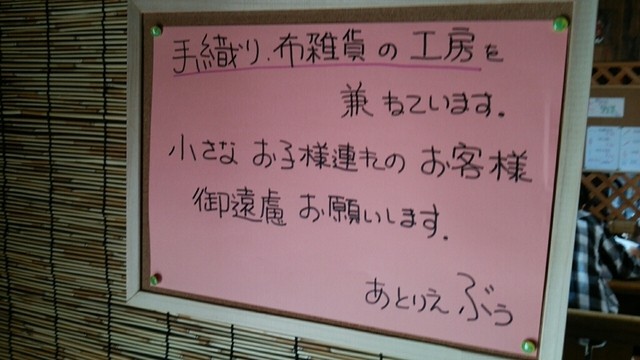 手織り、布雑貨の工房を
兼ねています。
小さなお子様連れのお客様
御遠慮お願いします。
あとりえぶう